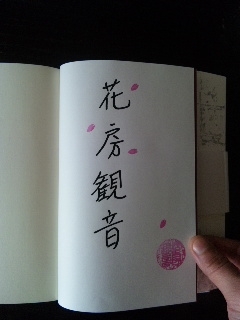 花房観音